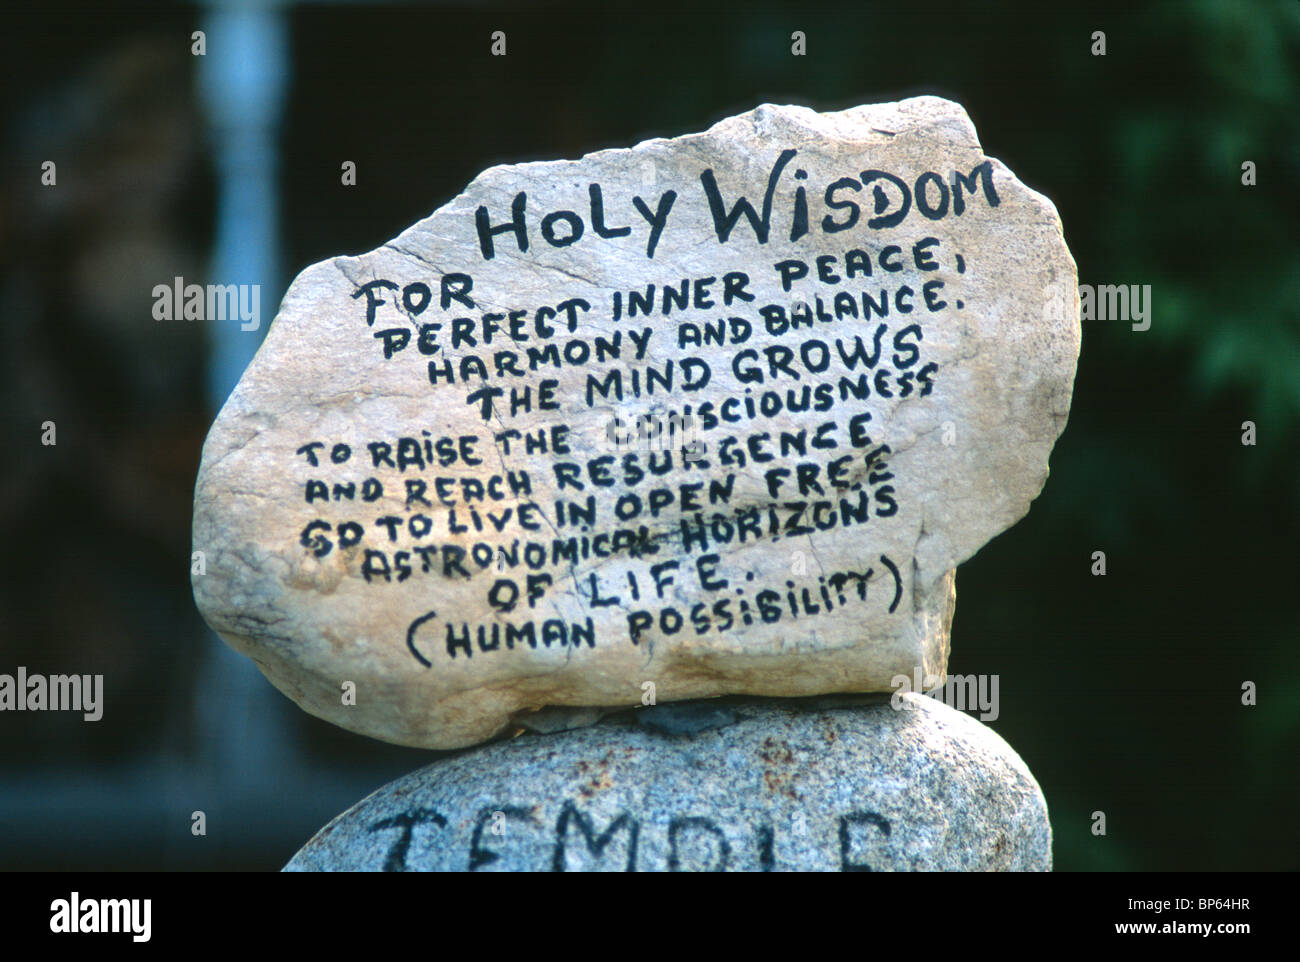 HOLY WISDOM
FOR
PERFECT INNER PEACE,
HARMONY AND BALANCE.
THE MIND GROWS
TO RAISE THE CONSCIOUSNESS
AND REACH RESURGENCE
GO TO LIVE IN OPEN FREE
ASTRONOMICAL HORIZONS
OF LIFE.
(HUMAN POSSIBILITY)
TEMPLE
alamy
Image ID: BP64HR
www.alamy.com